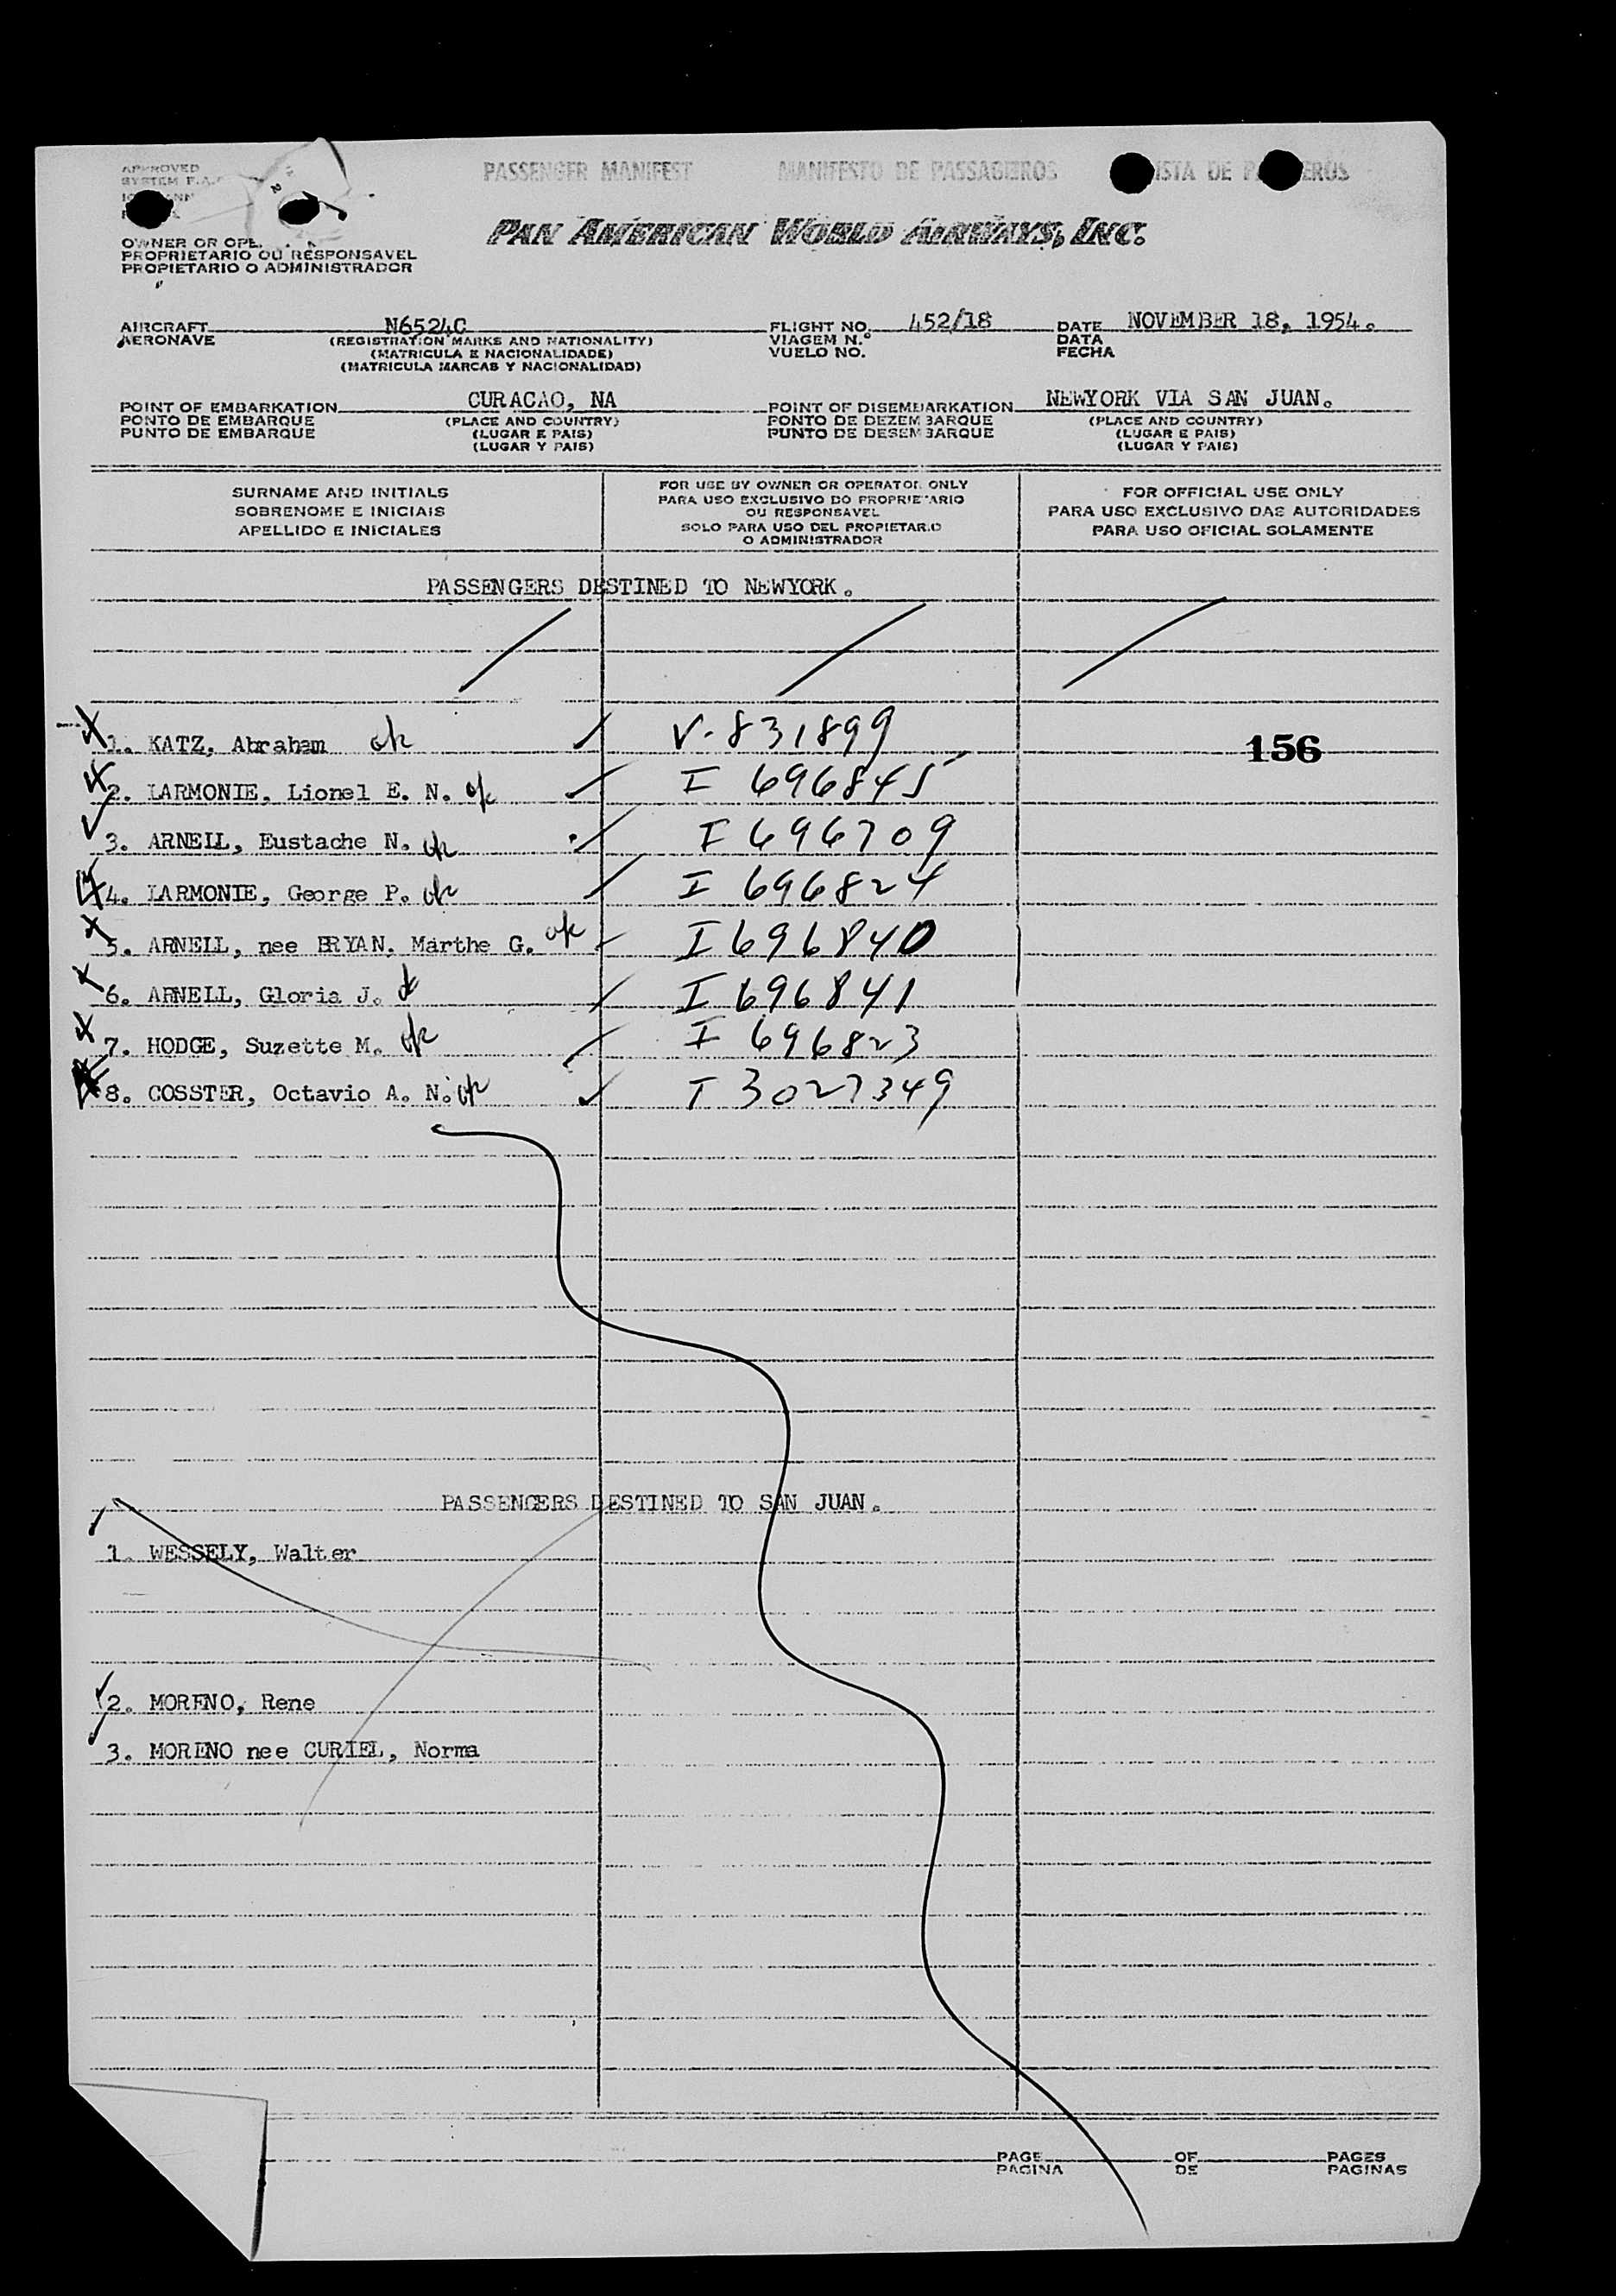 APPROVED
SYSTEM F.A.
PASSENGER MANIFEST MANIFESTO DE PASSAGEIROS LISTA DE PASAJEROS
PAN AMERICAN WORLD AIRWAYS, INC.
OWNER OR OPE
PROPRIETARIO OU RESPONSAVEL
PROPIETARIO O ADMINISTRADOR
AIRCRAFT N6524C FLIGHT NO. 452/18 DATE NOVEMBER 18, 1954.
AERONAVE (REGISTRATION MARKS AND NATIONALITY) VIAGEM N.º DATA
(MATRICULA E NACIONALIDADE) VUELO NO. FECHA
(MATRICULA MARCAS Y NACIONALIDAD)
POINT OF EMBARKATION CURACAO, NA POINT OF DISEMBARKATION NEWYORK VIA SAN JUAN.
PONTO DE EMBARQUE (PLACE AND COUNTRY) PONTO DE DEZEMBARQUE (PLACE AND COUNTRY)
PUNTO DE EMBARQUE (LUGAR E PAIS) PUNTO DE DESEMBARQUE (LUGAR E PAIS)
(LUGAR Y PAIS) (LUGAR Y PAIS)
SURNAME AND INITIALS
SOBRENOME E INICIAIS
APELLIDO E INICIALES
FOR USE BY OWNER OR OPERATOR ONLY
PARA USO EXCLUSIVO DO PROPRIETARIO
OU RESPONSAVEL
SOLO PARA USO DEL PROPIETARIO
O ADMINISTRADOR
FOR OFFICIAL USE ONLY
PARA USO EXCLUSIVO DAS AUTORIDADES
PARA USO OFICIAL SOLAMENTE
PASSENGERS DESTINED TO NEWYORK.
1. KATZ, Abraham ok V-831899 156
2. LARMONIE, Lionel E. N. ok I 696845
3. ARNELL, Eustache N. ok I 696709
4. LARMONIE, George P. ok I 696824
5. ARNELL, nee BRYAN, Marthe G. ok I 696840
6. ARNELL, Gloria J. ok I 696841
7. HODGE, Suzette M. ok I 696823
8. COSSTER, Octavio A. N. ok I 3027349
PASSENGERS DESTINED TO SAN JUAN.
1. WESSELY, Walter
2. MORENO, Rene
3. MORENO nee CURIEL, Norma
PAGE OF PAGES
PAGINA DE PAGINAS